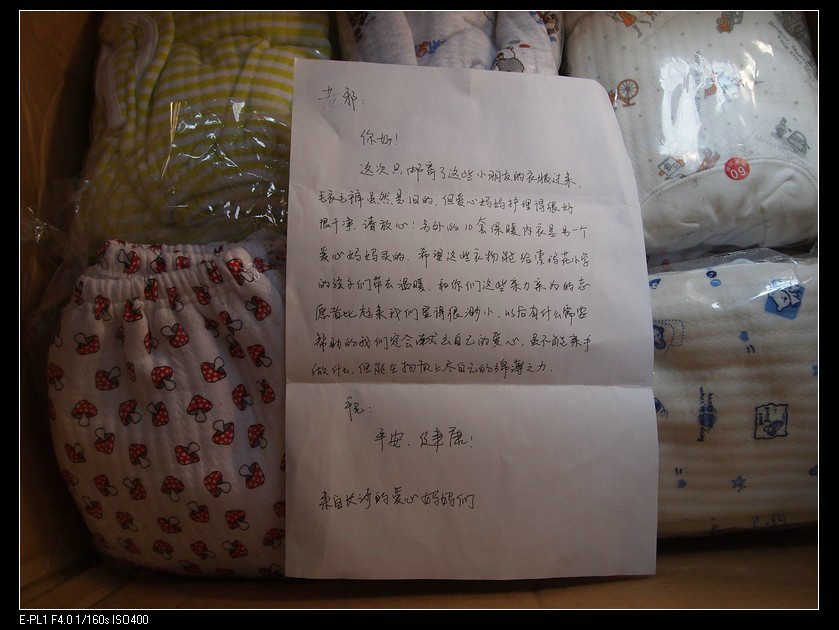 老邪:
你好!
这次只邮寄了这些小朋友的衣服过来,
毛衣毛裤虽然是旧的,但爱心妈妈护理得很好
很干净,请放心!另外的10套保暖内衣是另一个
爱心妈妈买的,希望这些衣物能给雪玛花小学
的孩子们带去温暖,和你们这些亲力亲为的志
愿者比起来我们显得很渺小,以后有什么需要
帮助的我们定会献出自己的爱心,虽不能亲手
做什么,但能在物质上尽自己的绵薄之力.
祝:
平安、健康!
来自长沙的爱心妈妈们
60
E-PL1 F4.0 1/160s ISO400